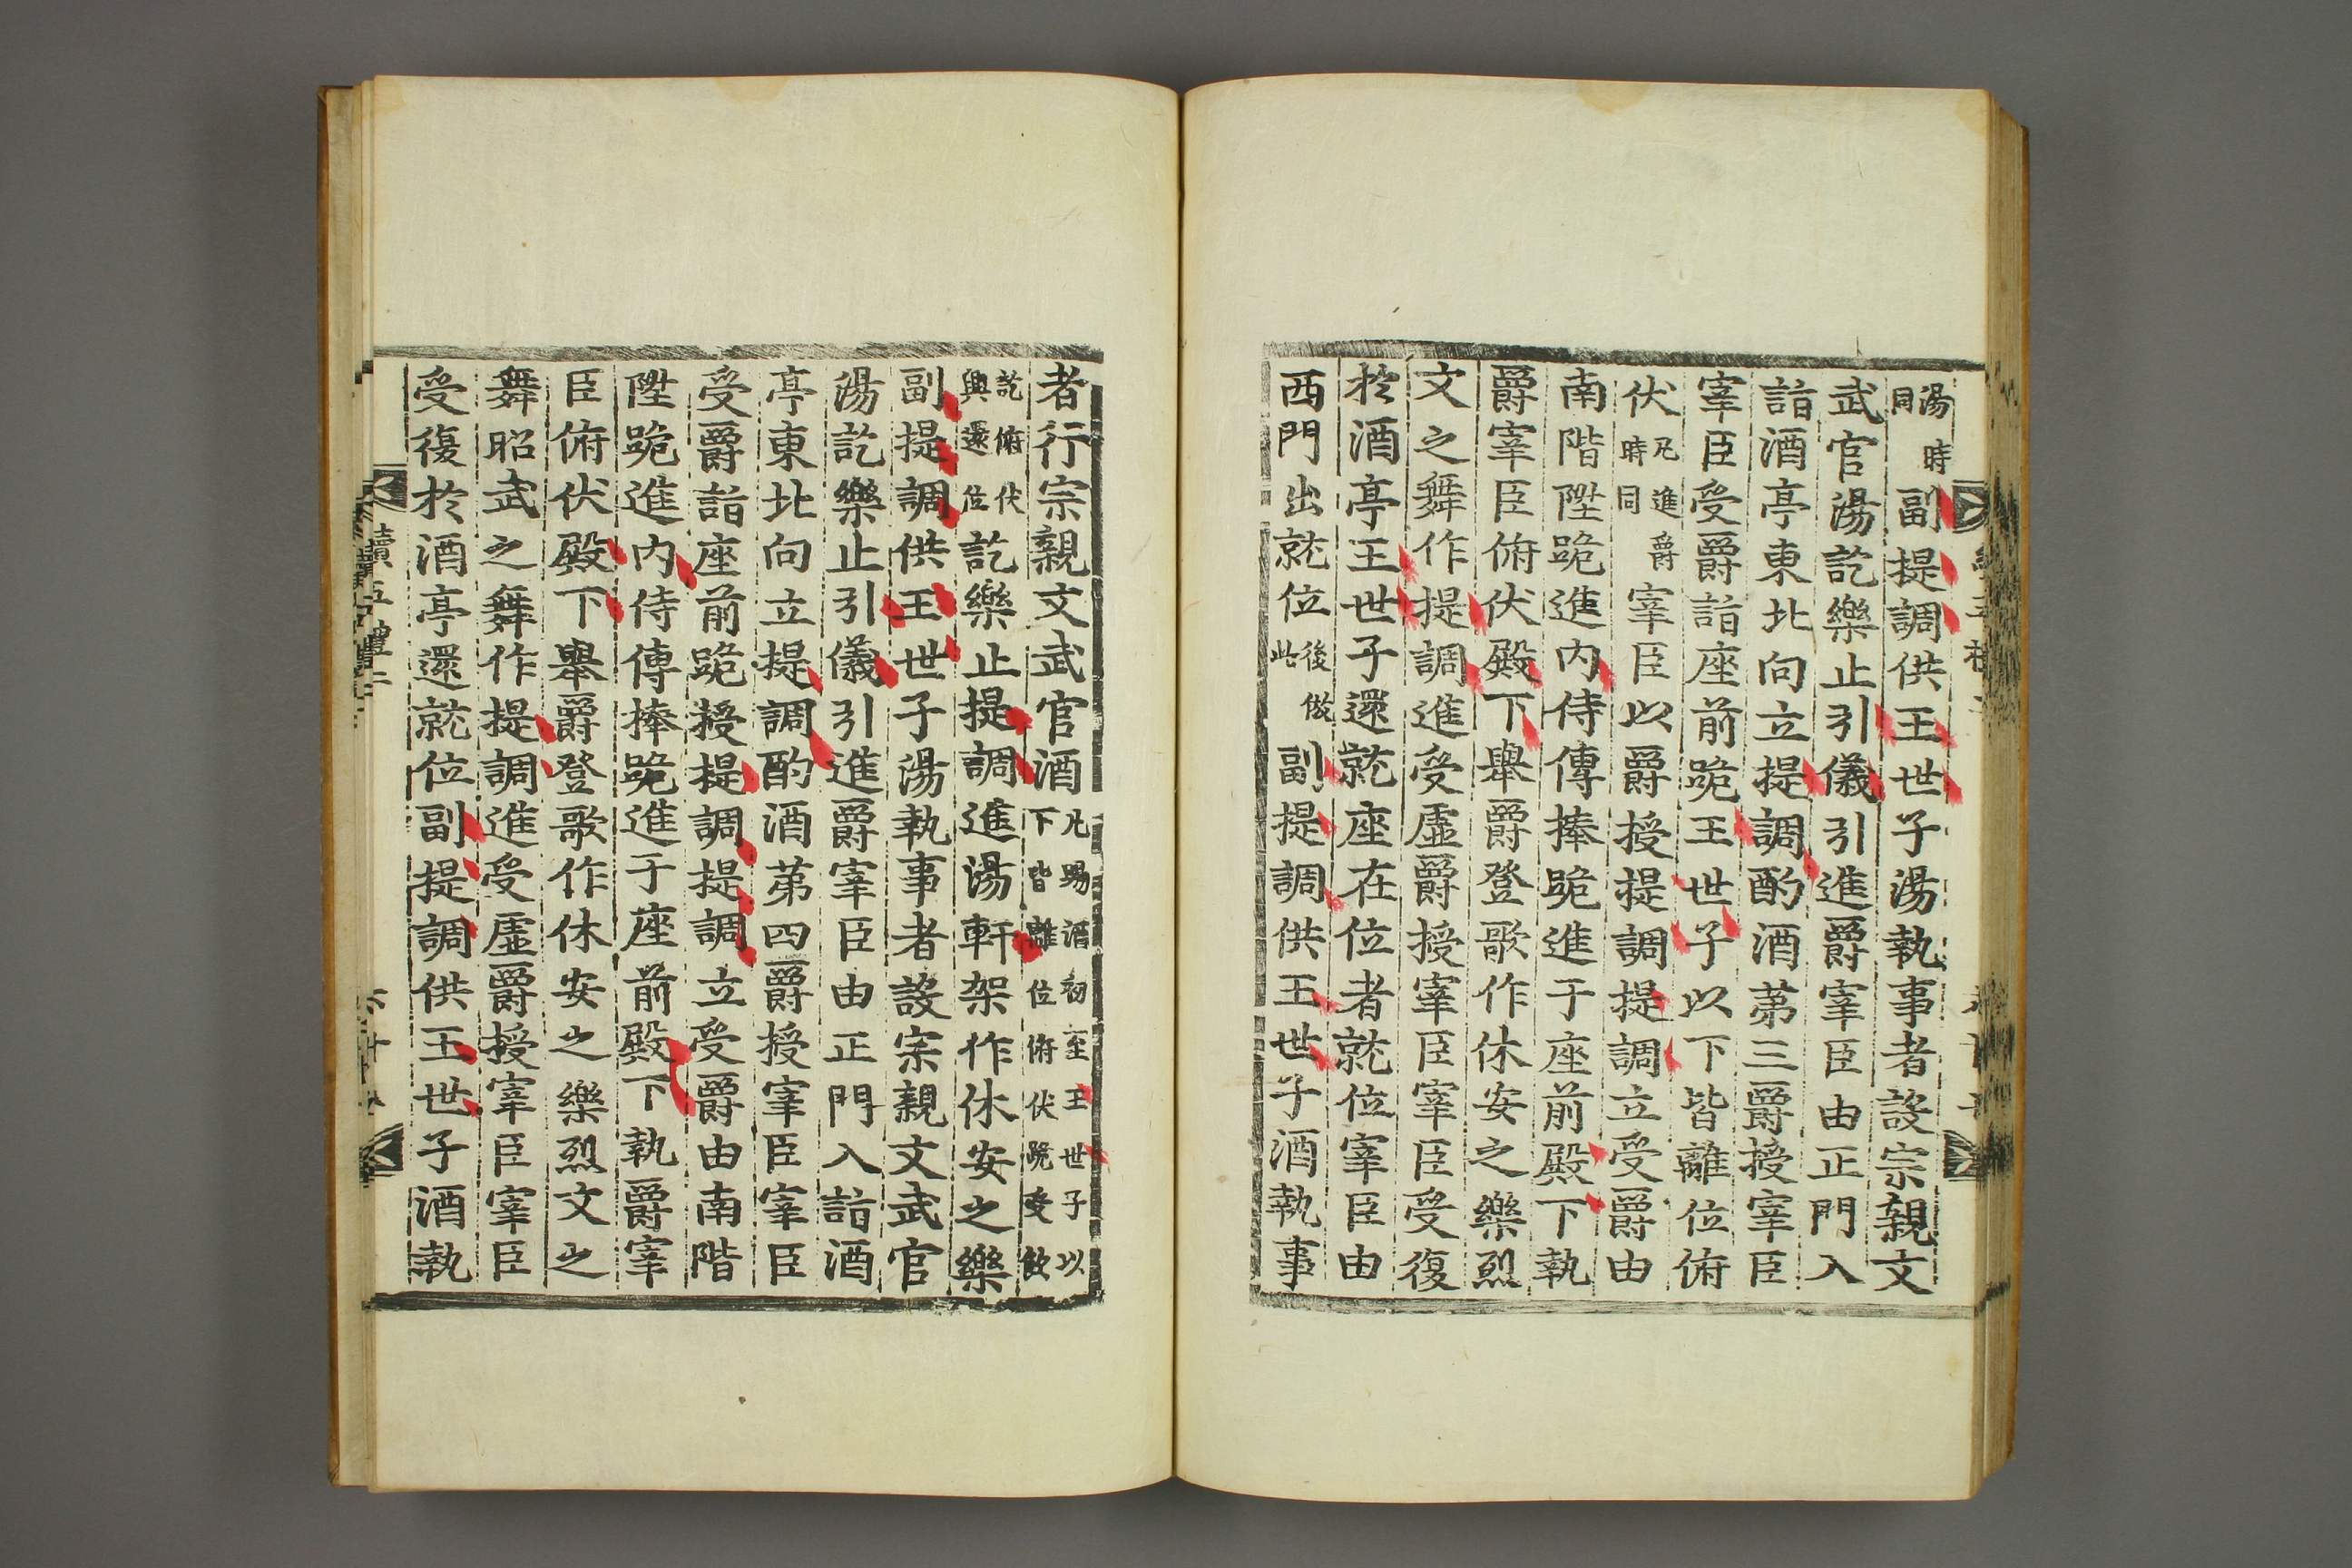 湯時同副提調供王世子湯執事者設宗親文
武官湯訖樂止引儀引進爵宰臣由正門入
詣酒亭東北向立提調酌酒第三爵授宰臣
宰臣受爵詣座前跪王世子以下皆離位俯
伏凡進爵時同宰臣以爵授提調提調立受爵由
南階陞跪進內侍傳捧跪進于座前殿下執
爵宰臣俯伏殿下舉爵登歌作休安之樂烈
文之舞作提調進受虛爵授宰臣宰臣受復
於酒亭王世子還就座在位者就位宰臣由
西門出就位後倣此副提調供王世子酒執事
者行宗親文武官酒凡賜酒初至王世子以下皆離位俯伏跪受飮
訖俯伏興還位訖樂止提調進湯軒架作休安之樂
副提調供王世子湯執事者設宗親文武官
湯訖樂止引儀引進爵宰臣由正門入詣酒
亭東北向立提調酌酒第四爵授宰臣宰臣
受爵詣座前跪授提調提調立受爵由南階
陞跪進內侍傳捧跪進于座前殿下執爵宰
臣俯伏殿下舉爵登歌作休安之樂烈文之
舞昭武之舞作提調進受虛爵授宰臣宰臣
受復於酒亭還就位副提調供王世子酒執
續五禮二